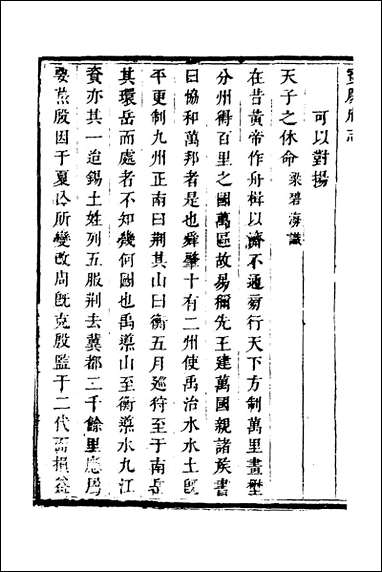 寶慶府志
可以對揚
天子之休命梁碧海識
在昔黃帝作舟楫以濟不通旁行天下方制萬里畫壄
分州得百里之國萬區故易稱先王建萬國親諸矦書
曰協和萬邦者是也舜肇十有二州使禹治水水土旣
平更制九州正南曰荆其山曰衡五月巡狩至于南岳
其環岳而處者不知幾何國也禹導山至衡導水九江
賓亦其一迨錫土姓列五服荆去冀都三千餘里應爲
要荒殷因于夏所變改周旣克殷監于二代而損益